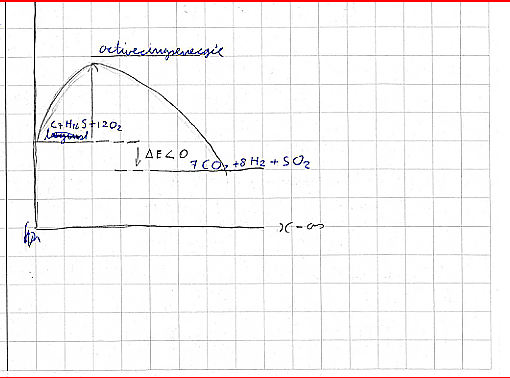 activeringsenergie
C7H16S+12O2
ΔE<0
7CO2+8H2+SO2
x-as